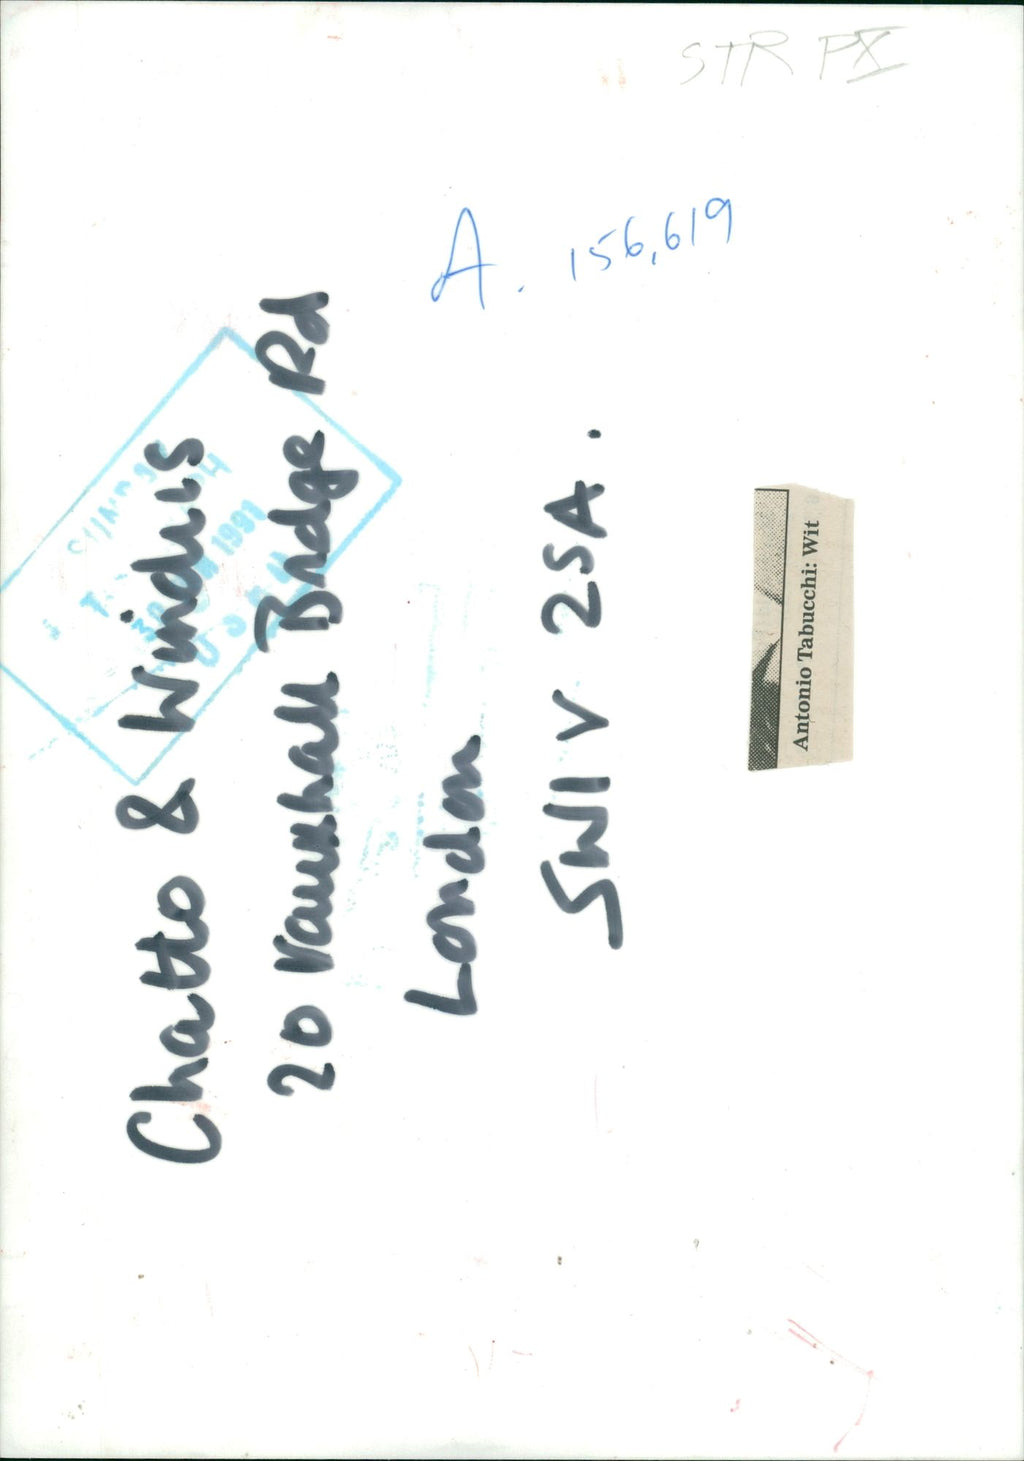 STR PX
A. 156,619
Chatto & Windus
20 Vauxhall Bridge Rd
London
SW1V 2SA.
Antonio Tabucchi: Wit
1991